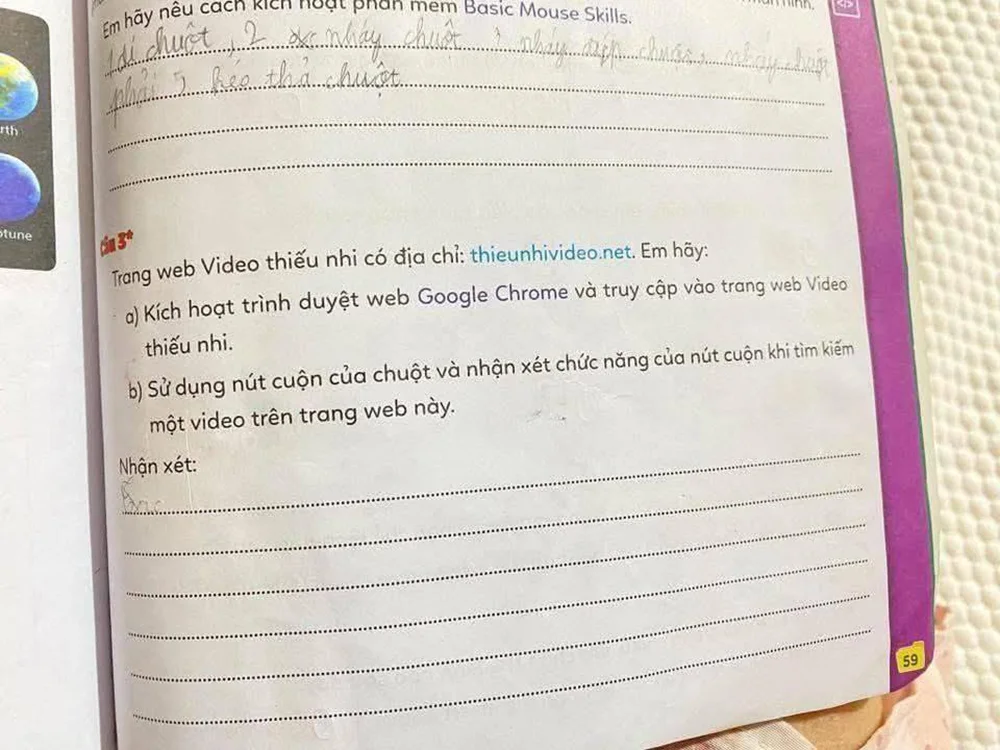 Em hãy nêu cách kích hoạt phần mềm Basic Mouse Skills.
1 di chuột, 2 nháy chuột, 3 nháy đúp chuột, nháy chuột
phải 5 kéo thả chuột
rth
otune
Câu 3*
Trang web Video thiếu nhi có địa chỉ: thieunhivideo.net. Em hãy:
a) Kích hoạt trình duyệt web Google Chrome và truy cập vào trang web Video
thiếu nhi.
b) Sử dụng nút cuộn của chuột và nhận xét chức năng của nút cuộn khi tìm kiếm
một video trên trang web này.
Nhận xét:
59